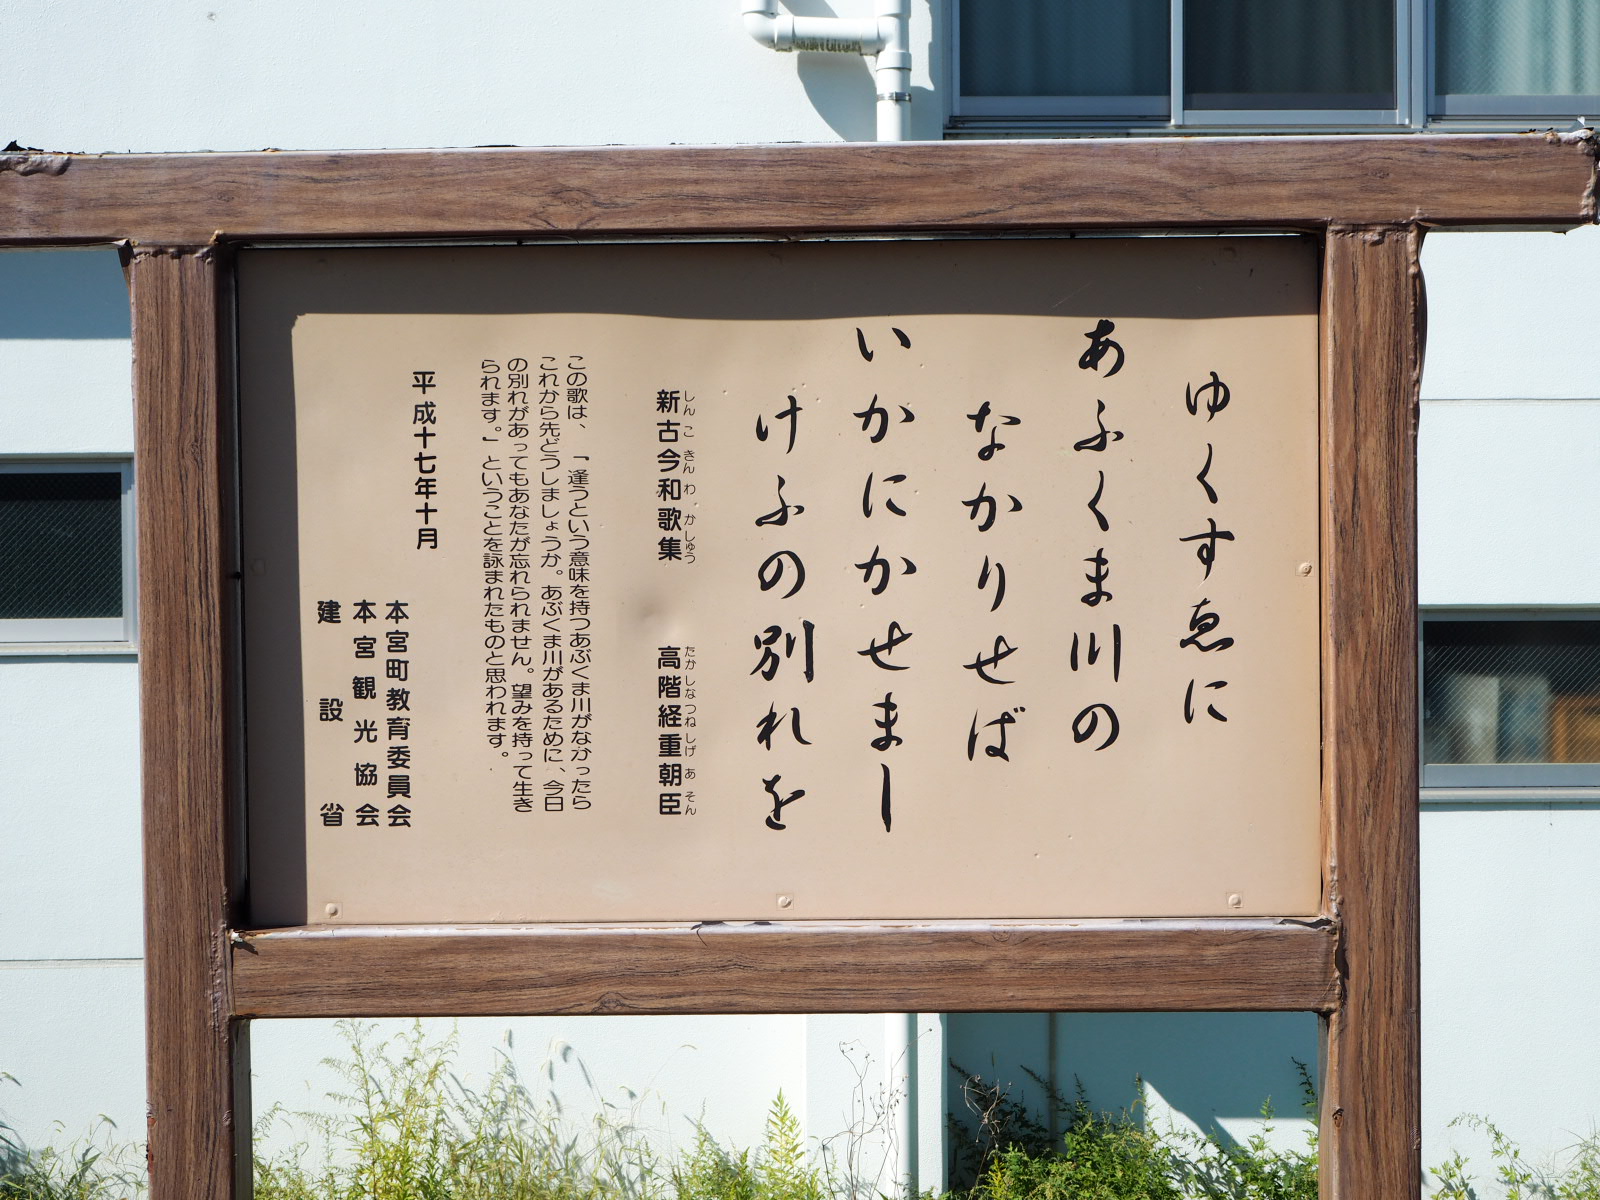 ゆくすゑに
あふくま川の
なかりせば
いかにかせまし
けふの別れを
新古今和歌集 高階経重朝臣
しんこきんわかしゅう たかしなつねしげあそん
この歌は、「逢うという意味を持つあぶくま川がなかったら
これから先どうしましょうか。あぶくま川があるために、今日
の別れがあってもあなたが忘れられません。望みを持って生き
られます。」ということを詠まれたものと思われます。
平成十七年十月
本宮町教育委員会
本宮観光協会
建設省